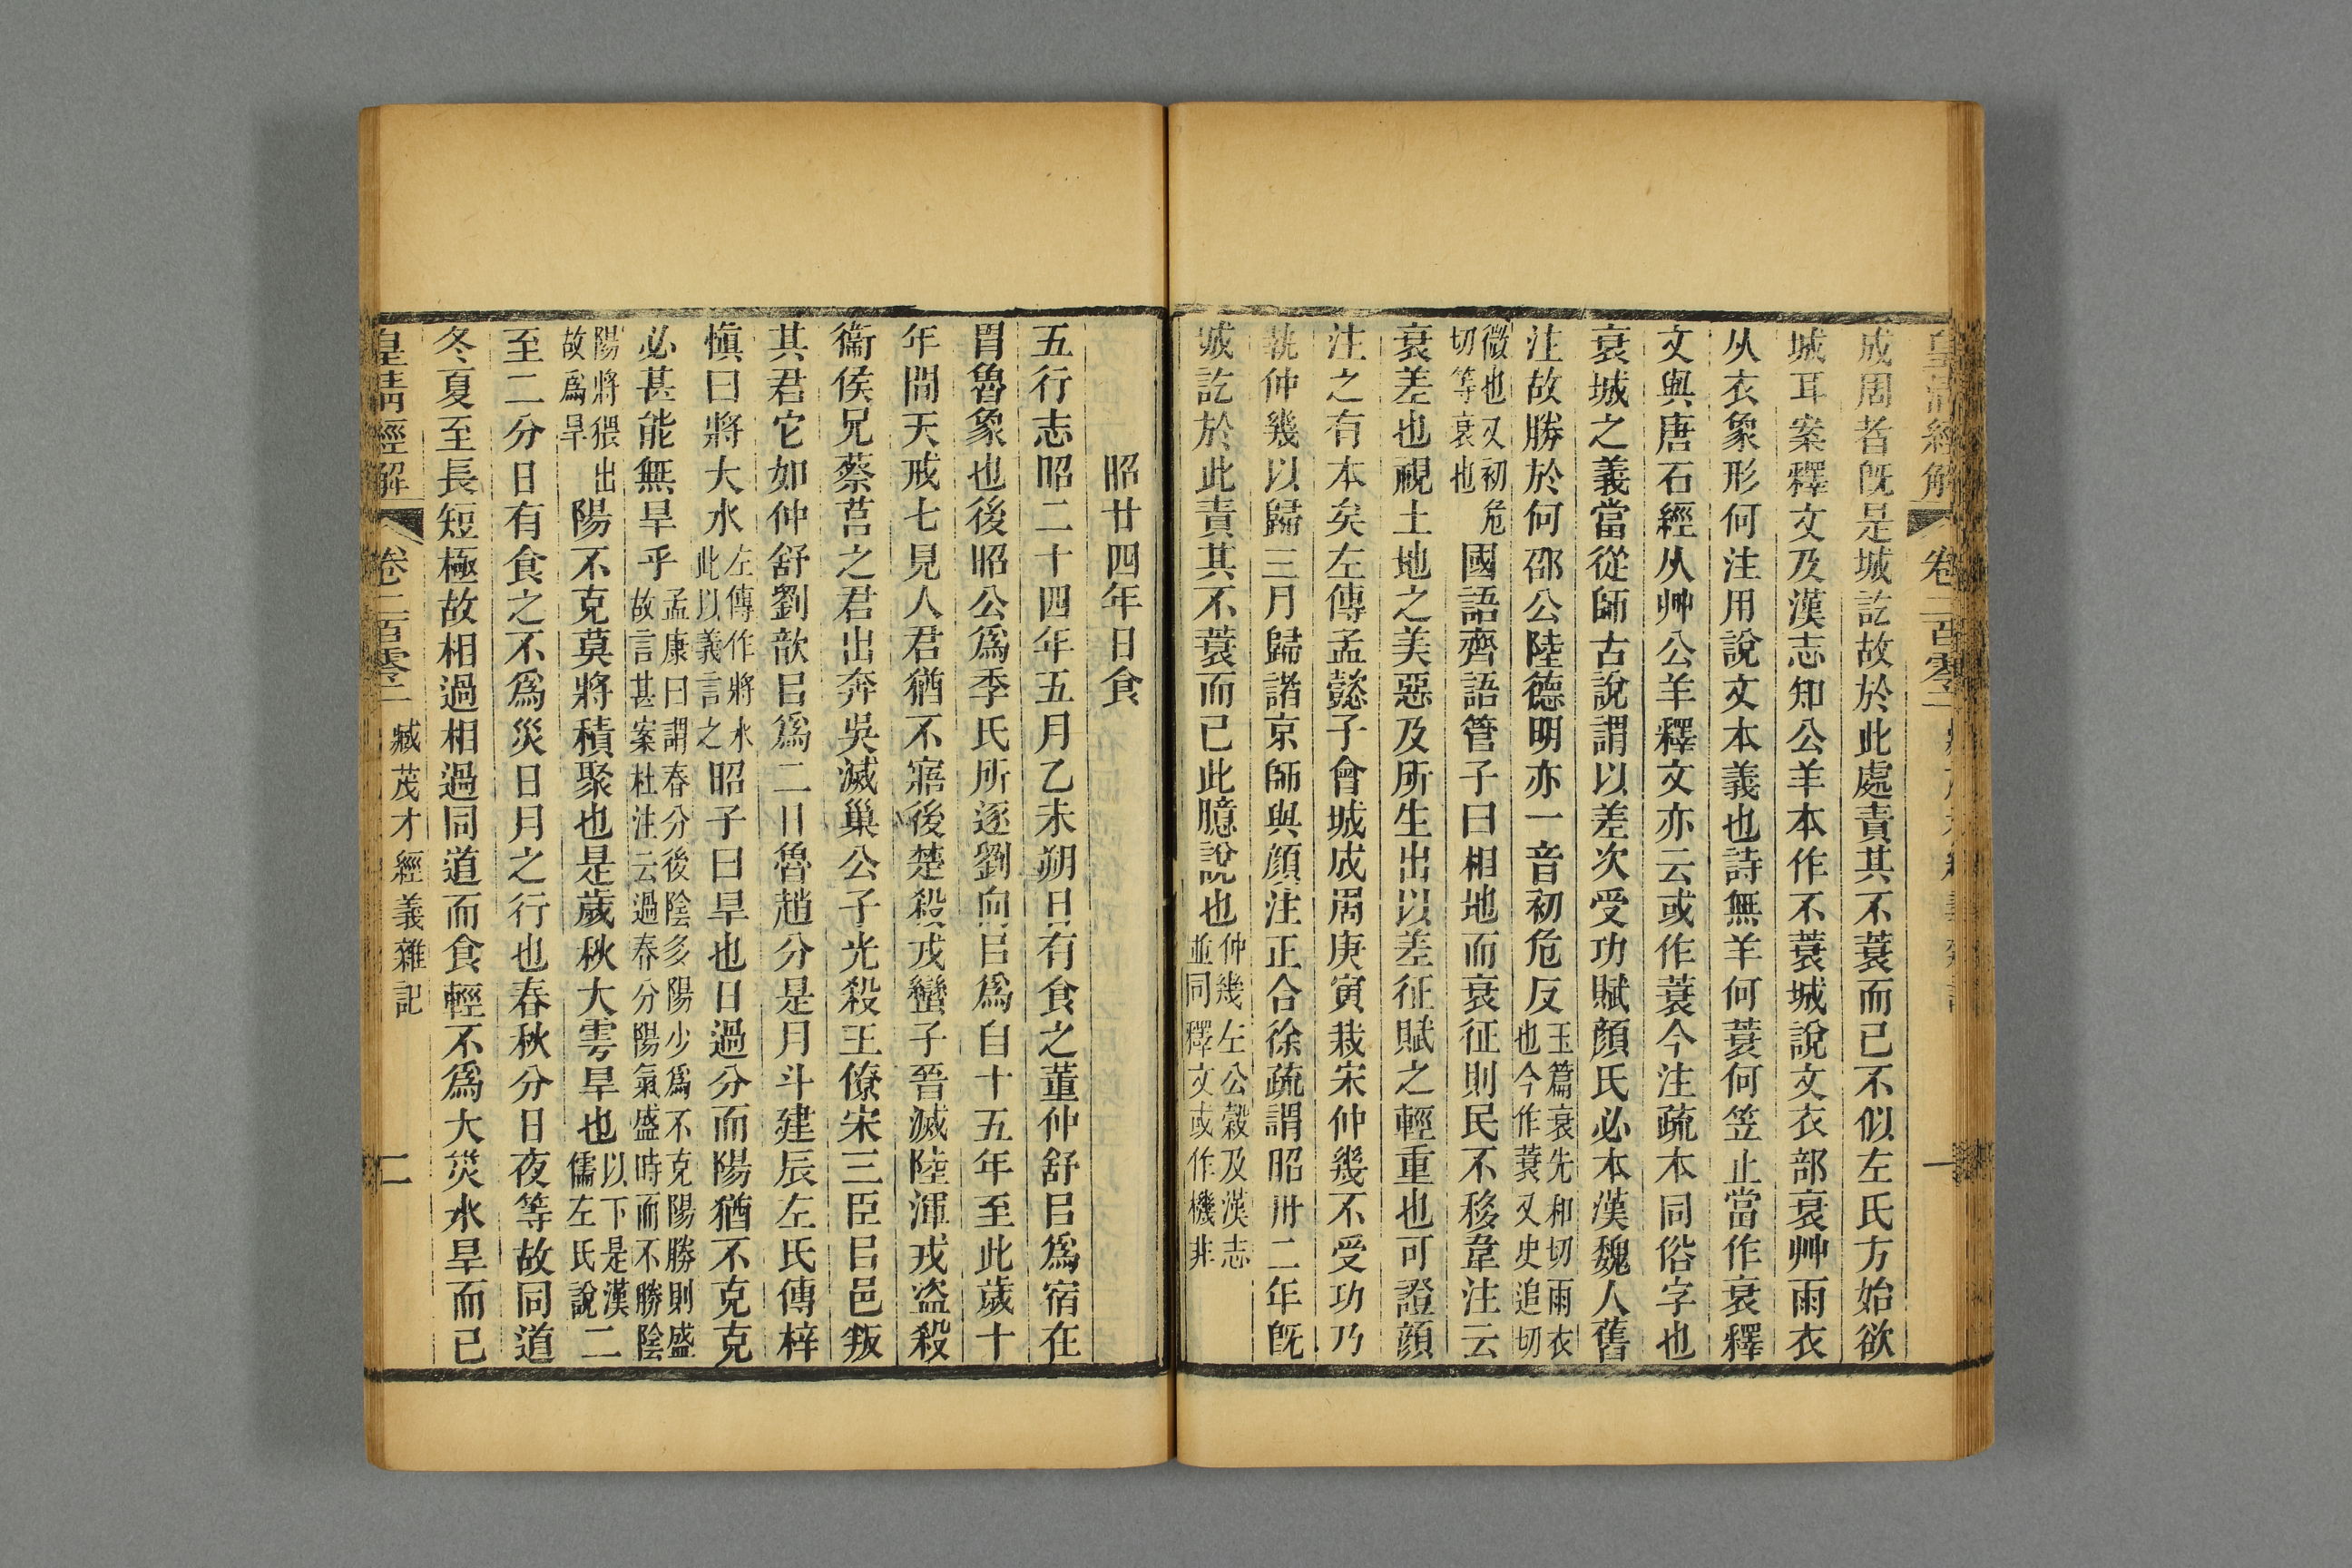 皇清經解 卷二百零二 一
成周者旣是城訖故於此處責其不蓑而已不似左氏方始欲
城耳案釋文及漢志知公羊本作不蓑城說文衣部衰艸雨衣
从衣象形何注用說文本義也詩無羊何蓑何笠止當作衰釋
文與唐石經从艸公羊釋文亦云或作蓑今注疏本同俗字也
衰城之義當從師古說謂以差次受功賦顏氏必本漢魏人舊
注故勝於何邵公陸德明亦一音初危反玉篇衰先和切雨衣也今作蓑又史追切
微也又初危切等衰也國語齊語管子曰相地而衰征則民不移韋注云
衰差也視土地之美惡及所生出以差征賦之輕重也可證顏
注之有本矣左傳孟懿子會城成周庚寅栽宋仲幾不受功乃
執仲幾以歸三月歸諸京師與顏注正合徐疏謂昭卅二年旣
城訖於此責其不蓑而已此臆說也仲幾左公穀及漢志並同釋文或作機非
昭廿四年日食
五行志昭二十四年五月乙未朔日有食之董仲舒㠯爲宿在
胃魯象也後昭公爲季氏所逐劉向㠯爲自十五年至此歲十
年間天戒七見人君猶不寤後楚殺戎蠻子晉滅陸渾戎盜殺
衞侯兄蔡莒之君出奔吳滅巢公子光殺王僚宋三臣㠯邑叛
其君它如仲舒劉歆㠯爲二日魯趙分是月斗建辰左氏傳梓
愼曰將大水左傳作將水此以義言之昭子曰旱也日過分而陽猶不克克
必甚能無旱乎孟康曰謂春分後陰多陽少爲不克陽勝則盛故言甚案杜注云過春分陽氣盛時而不勝陰
陽將猥出故爲旱陽不克莫將積聚也是歲秋大雩旱也以下是漢儒左氏說二
至二分日有食之不爲災日月之行也春秋分日夜等故同道
冬夏至長短極故相過相過同道而食輕不爲大災水旱而已
皇清經解 卷二百零二 臧茂才經義雜記 二